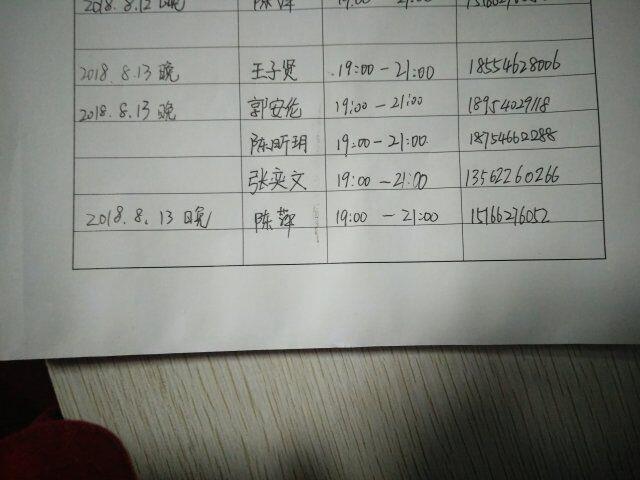 2018.8.12晚 陈 19:00-21:00
2018.8.13晚 王子贤 19:00-21:00 18554628006
2018.8.13晚 郭安伦 19:00-21:00 18954029118
陈昕玥 19:00-21:00 18754662288
张奕文 19:00-21:00 13562260266
2018.8.13晚 陈萍 19:00-21:00 15166276052